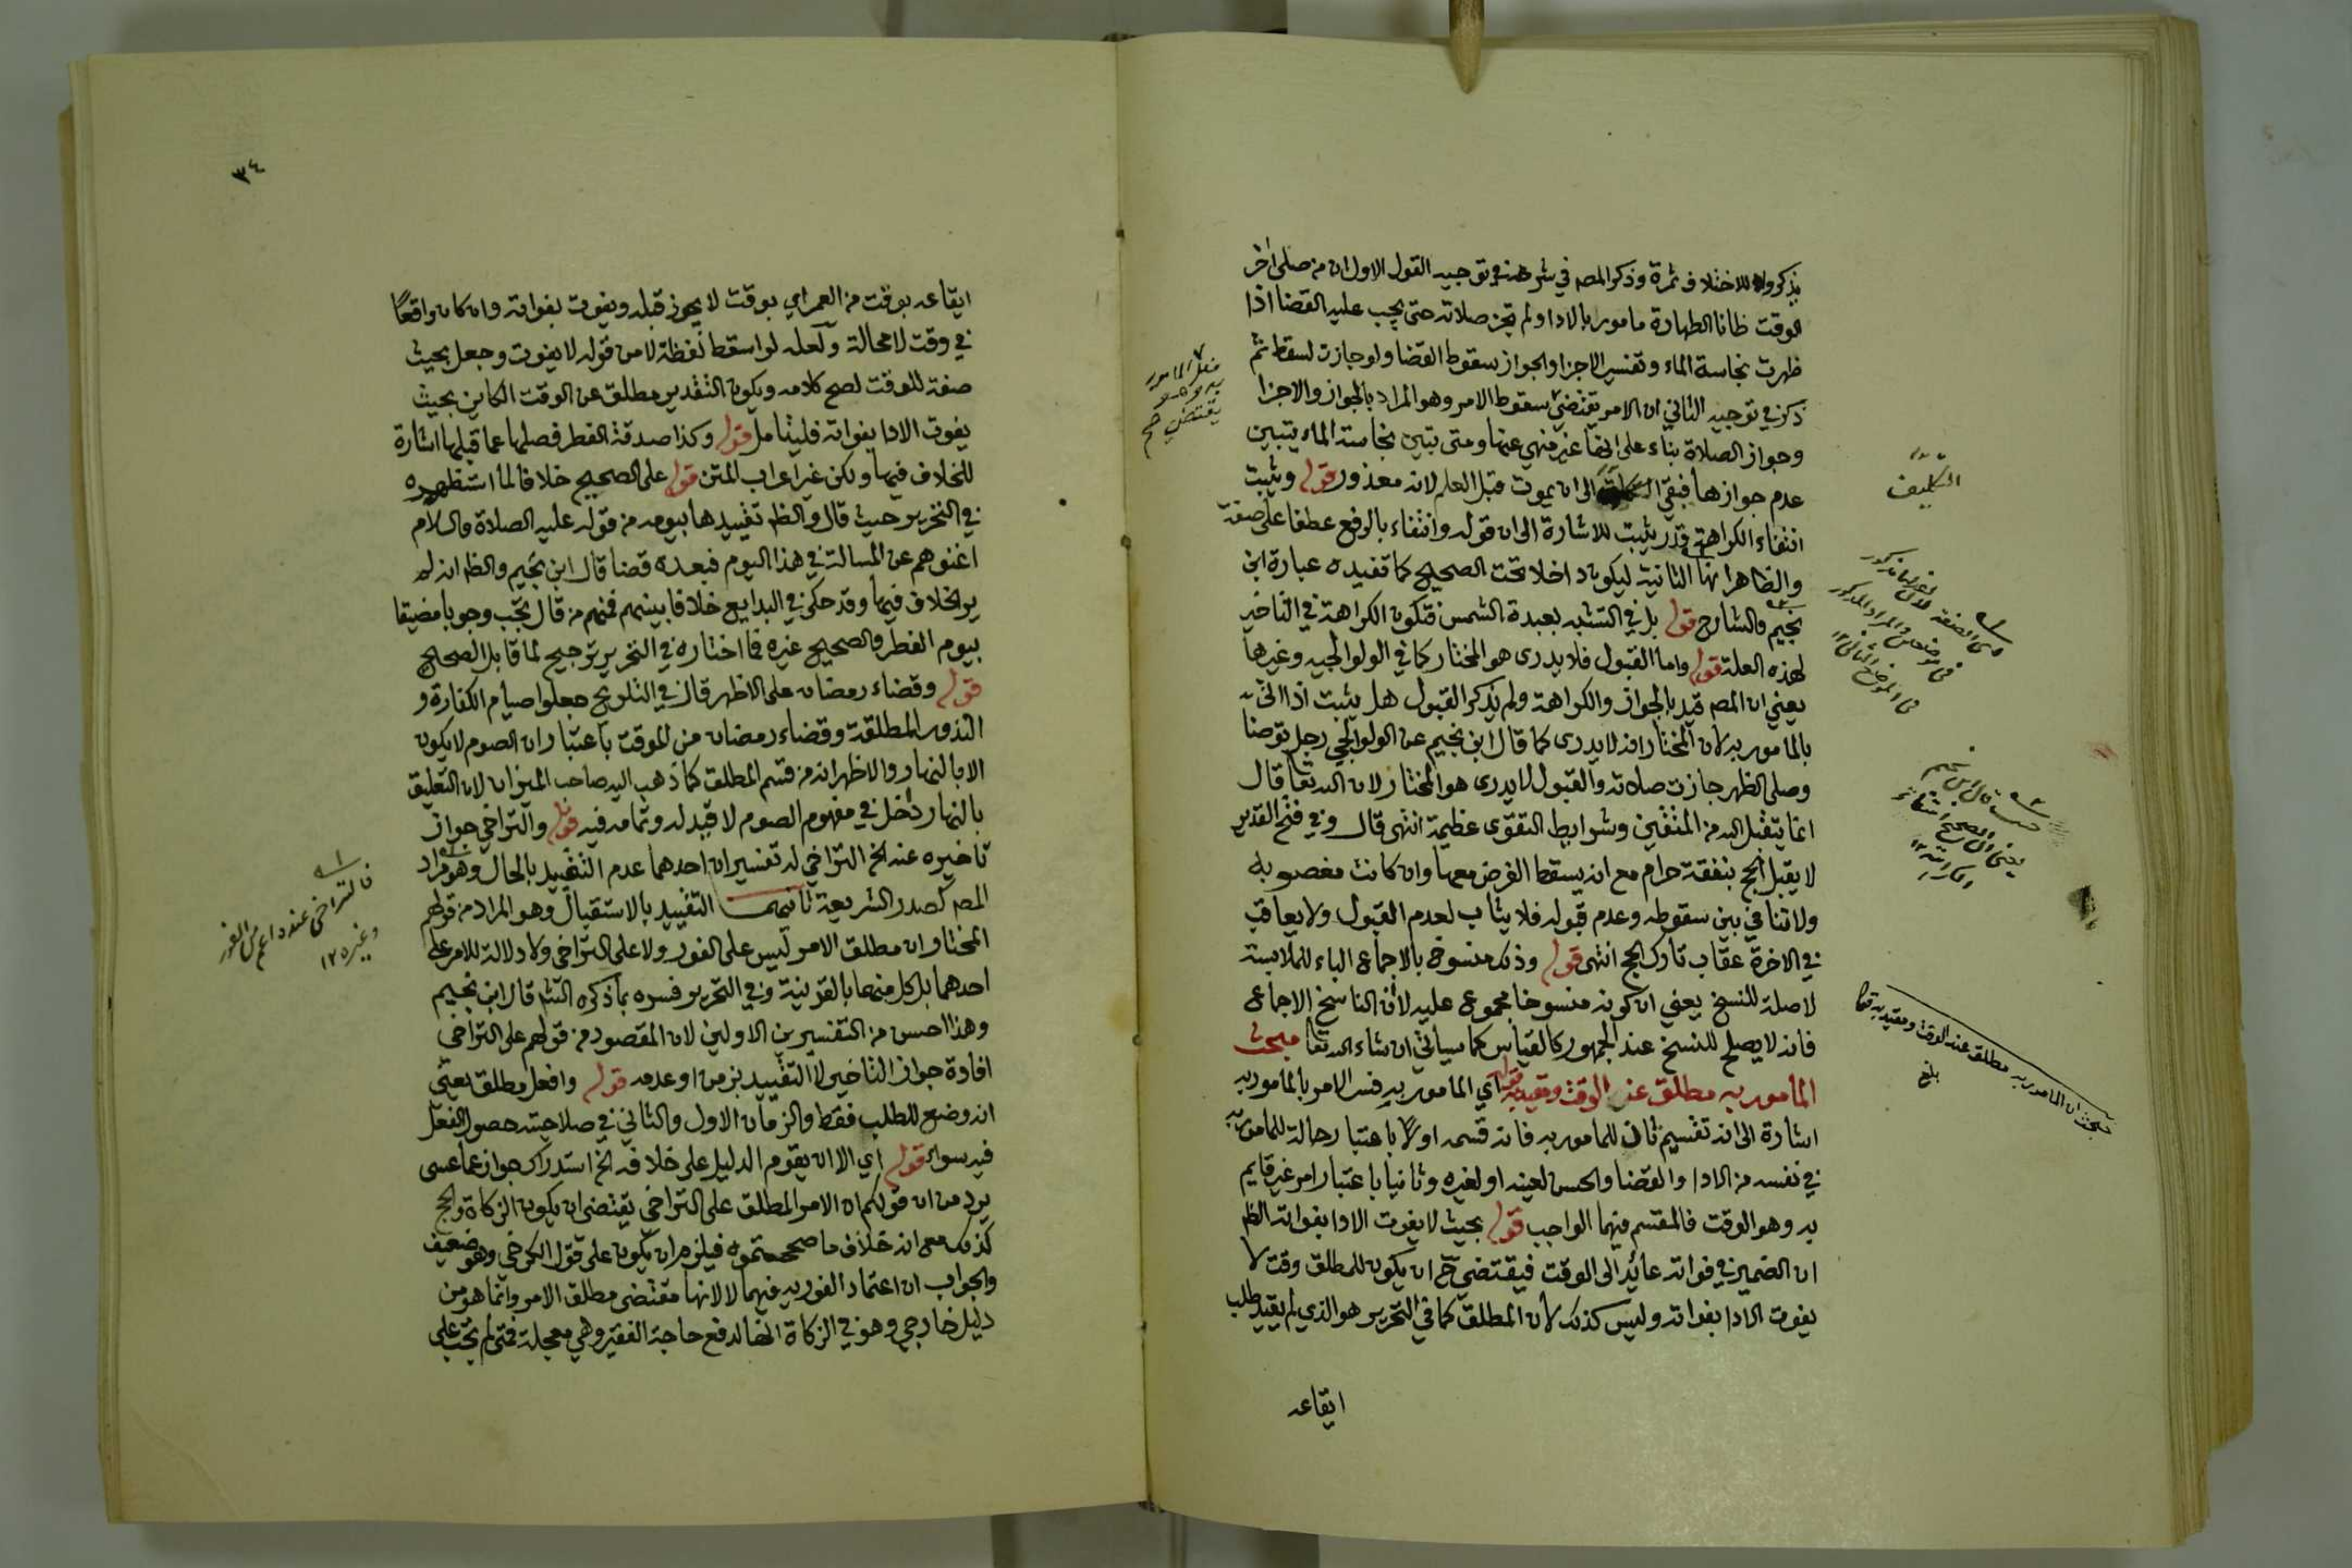 يذكروا للاختلاف ثمرة وذكر المصـ في شرحه في توجيه القول الاول ان من صلى اخر
الوقت ظانا الطهارة مامور بالادا ولم تجز صلاته حتى يجب عليه القضا اذا
ظهرت نجاسة الماء وتفسير الاجزا والجواز سقوط القضا ولو جازت لسقط ثم
ذكر في توجيه الثاني ان الامر يقتضي سقوط الامر وهو المراد بالجواز والاجزا
وجواز الصلاة بناء على انها غير منهي عنها ومتى تبين نجاسة الماء يتبين
عدم جوازها فبقي الى ان يموت قبل العلم لانه معذور قوله ويثبت
انتفاء الكراهة قدر يثبت للاشارة الى ان قوله وانتفاء بالرفع عطفا على صفة
والظاهر انها الثانية ليكون داخلا تحت الصحيح كما تفيده عبارة ابن
نجيم والشارح قوله بل في التشبه بعبدة الشمس فتكون الكراهة في التاخير
لهذه العلة قوله واما القبول فلا يدرى هو المختار كما في الولوالجيه وغيرها
يعني ان المصـ قيد بالجواز والكراهة ولم يذكر القبول هل يثبت اذا اتى
بالمامور به لان المختار انه لا يدرى كما قال ابن نجيم عن الولوالجي رجل توضا
وصلى الظهر جازت صلاته والقبول لا يدرى هو المختار لان الله تعا قال
انما يتقبل الله من المتقين وشرايط التقوى عظيمة انتهى قال وفي فتح القدير
لا يقبل الحج بنفقة حرام مع انه يسقط الفرض معها وان كانت مغصوبه
ولا تنافي بين سقوطه وعدم قبوله فلا يثاب لعدم القبول ولا يعاقب
في الاخرة عقاب تارك الحج انتهى قوله وذلك منسوخ بالاجماع الباء للملابسة
لا صلة للنسخ يعني ان كونه منسوخا مجموع عليه لا ان الناسخ الاجماع
فانه لا يصلح للنسخ عند الجمهور كالقياس كما سياتي ان شاء الله تعا مبحث
المامور به مطلق عن الوقت ومقيد به قوله اي المامور به فسر الامر بالمامور به
اشارة الى انه تقسيم ثان للمامور به فانه قسمه اولا باعتبار حالة للمامور به
في نفسه من الادا والقضا والحسن لعينه او لغيره وثانيا باعتبار امر غير قايم
به وهو الوقت فالمقسم فيهما الواجب قوله بحيث لا يفوت الادا بفواته الظـ
ان الضمير في فواته عائد الى الوقت فيقتضي ح ان يكون للمطلق وقت لا
يفوت الادا بفواته وليس كذلك لان المطلق كما في التحرير هو الذي لم يقيد طلب
ايقاعه
فعل المامور
به
يقتضي صح
التكليف
حيث قال ابن نجيم
مبحث ان المامور به مطلق عند الوقت ومقيد به
بلغ
٣٤
ايقاعه بوقت من العمر اي بوقت لا يجوز قبله ويفوت بفواته وان كان واقعا
في وقت لا محالة ولعله لو اسقط لفظة لا من قوله لا يفوت وجعل بحيث
صفة للوقت لصح كلامه ويكون التقدير مطلق عن الوقت الكاين بحيث
يفوت الادا بفواته فليتامل قوله وكذا صدقة الفطر فصلها عما قبلها اشارة
للخلاف فيها ولكن غير اعراب المتن قوله على الصحيح خلافا لما استظهره
في التحرير حيث قال والظـ تقييدها بيومه من قوله عليه الصلاة والسلام
اغنوهم عن المسالة في هذا اليوم فبعده قضا قال ابن نجيم والظـ انه لم
ير الخلاف فيها وقد حكى في البدايع خلافا بينهم فمنهم من قال تجب وجوبا مضيقا
بيوم الفطر والصحيح غيره فما اختاره في التحرير ترجيح لما قابل الصحيح
قوله وقضاء رمضان على الاظهر قال في التلويح جعلوا صيام الكفارة و
النذور المطلقة وقضاء رمضان من الموقت باعتبار ان الصوم لا يكون
الا بالنهار والاظهر انه من قسم المطلق كما ذهب اليه صاحب الميزان لان التعليق
بالنهار داخل في مفهوم الصوم لا قيد له وتمامه فيه قوله والتراخي جواز
تاخيره عنه الخ التراخي له تفسيران احدهما عدم التقييد بالحال وهو مراد
المصـ كصدر الشريعة ثانيهما التقييد بالاستقبال وهو المراد من قولهم
المختار ان مطلق الامر ليس على الفور ولا على التراخي ولا دلالة للامر على
احدهما بل كل منهما بالقرينة وفي التحرير فسره بما ذكره الشـ قال ابن نجيم
وهذا احسن من التفسيرين الاولين لان المقصود من قولهم على التراخي
افادة جواز التاخير لا التقييد بزمن او عدمه قوله وافعل مطلق يعني
انه وضع للطلب فقط والزمان الاول والثاني في صلاحيته حصول الفعل
فيه سواء قوله اي الا ان يقوم الدليل على خلافه الخ استدراك جواز عما عسى
يرد من ان قولكم ان الامر المطلق على التراخي يقتضي ان يكون الزكاة والحج
كذلك مع انه خلاف ما صححتموه فيلزم ان يكون على قول الكرخي وهو ضعيف
والجواب ان اعتماد الفورية فيهما لا لانها مقتضى مطلق الامر وانما هو من
دليل خارجي وهو في الزكاة انها لدفع حاجة الفقير وهي معجلة فمتى لم تجب على
فالتراخي عنده اعم من الفور
وغيره ١٢